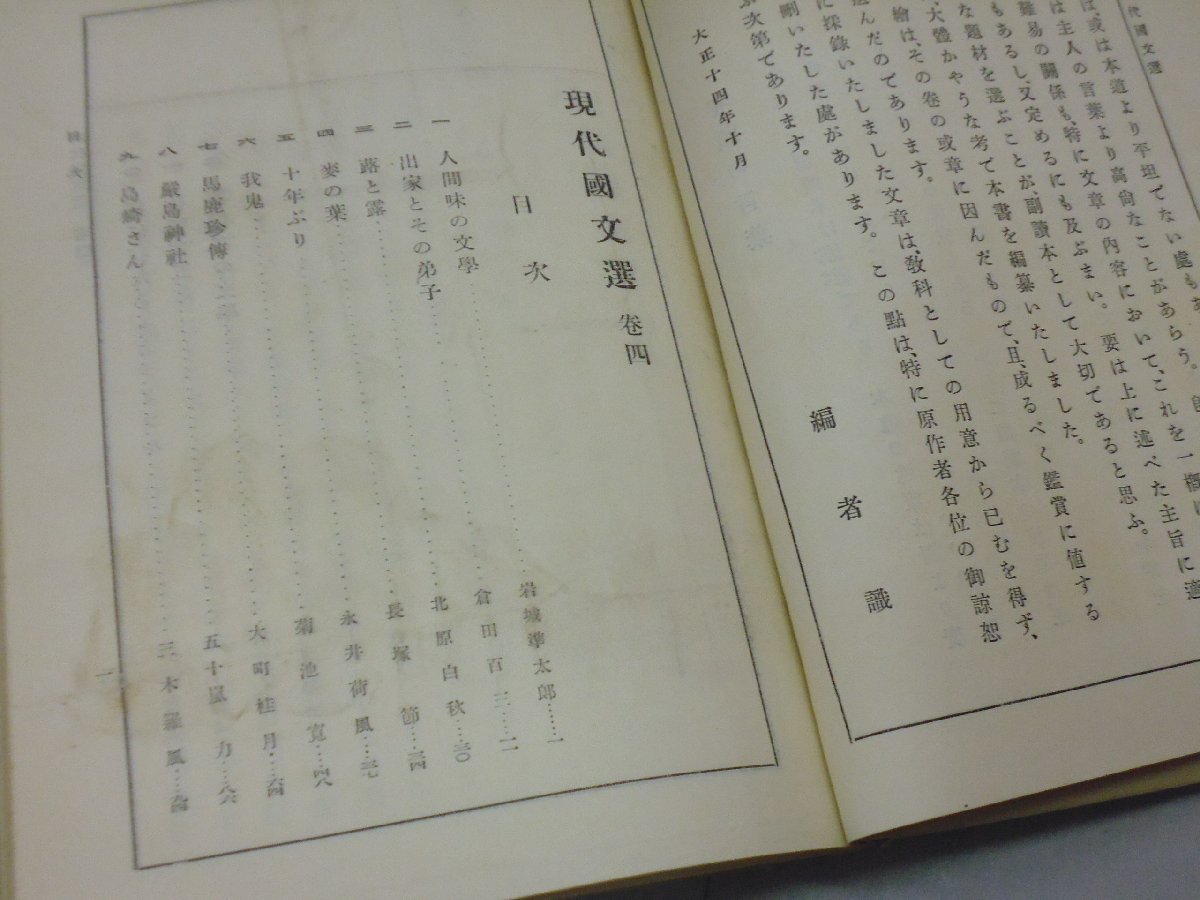 代國文選
は、或は本道より平坦でない處もあらう。
は主人の言葉より高尚なことがあらう。
難易の關係も、特に文章の内容において、これを一概に
もあるし、又定めるにも及ぶまい。要は上に述べた主旨に適
な題材を選ぶことが、副讀本として大切であると思ふ。
大體かやうな考で本書を編纂いたしました。
繪は、その卷の或章に因んだもので、且、成るべく鑑賞に値する
選んだのであります。
に採錄いたしました文章は、敎科としての用意から已むを得ず、
刪いたした處があります。この點は、特に原作者各位の御諒恕
ぶ次第であります。
大正十四年十月
編者識
現代國文選 卷四
目次
一 人間味の文學……岩城準太郎……一
二 出家とその弟子……倉田百三……一一
三 蕗と露……北原白秋……三〇
四 麥の葉……長塚節……三四
五 十年ぶり……永井荷風……三七
六 我鬼……菊池寬……四八
七 馬鹿珍傳……大町桂月……六四
八 嚴島神社……五十嵐力……八六
九 島崎さん……三木羅風……九四
目次
一